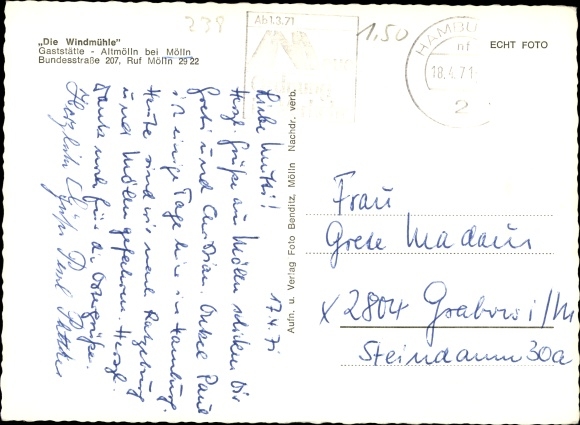 „Die Windmühle"
Gaststätte - Altmölln bei Mölln
Bundesstraße 207, Ruf Mölln 29 22
239
Ab 1.3.71
1,50
HAMBU
18.4.71
2
ECHT FOTO
17.4.71
Liebe Mutti!
Herzl. Grüße aus Mölln schicken Dir
Greti und Christian. Onkel Paul
ist einige Tage hier in Hamburg.
Heute sind wir nach Ratzeburg
und Mölln gefahren. Herzl.
Dank noch für die Ostergrüße.
Herzliche Grüße Paul
Aufn. u. Verlag Foto Benditz, Mölln Nachdr. verb.
Frau
Grete Madaus
X 2804 Grabow/M
Steindamm 30a